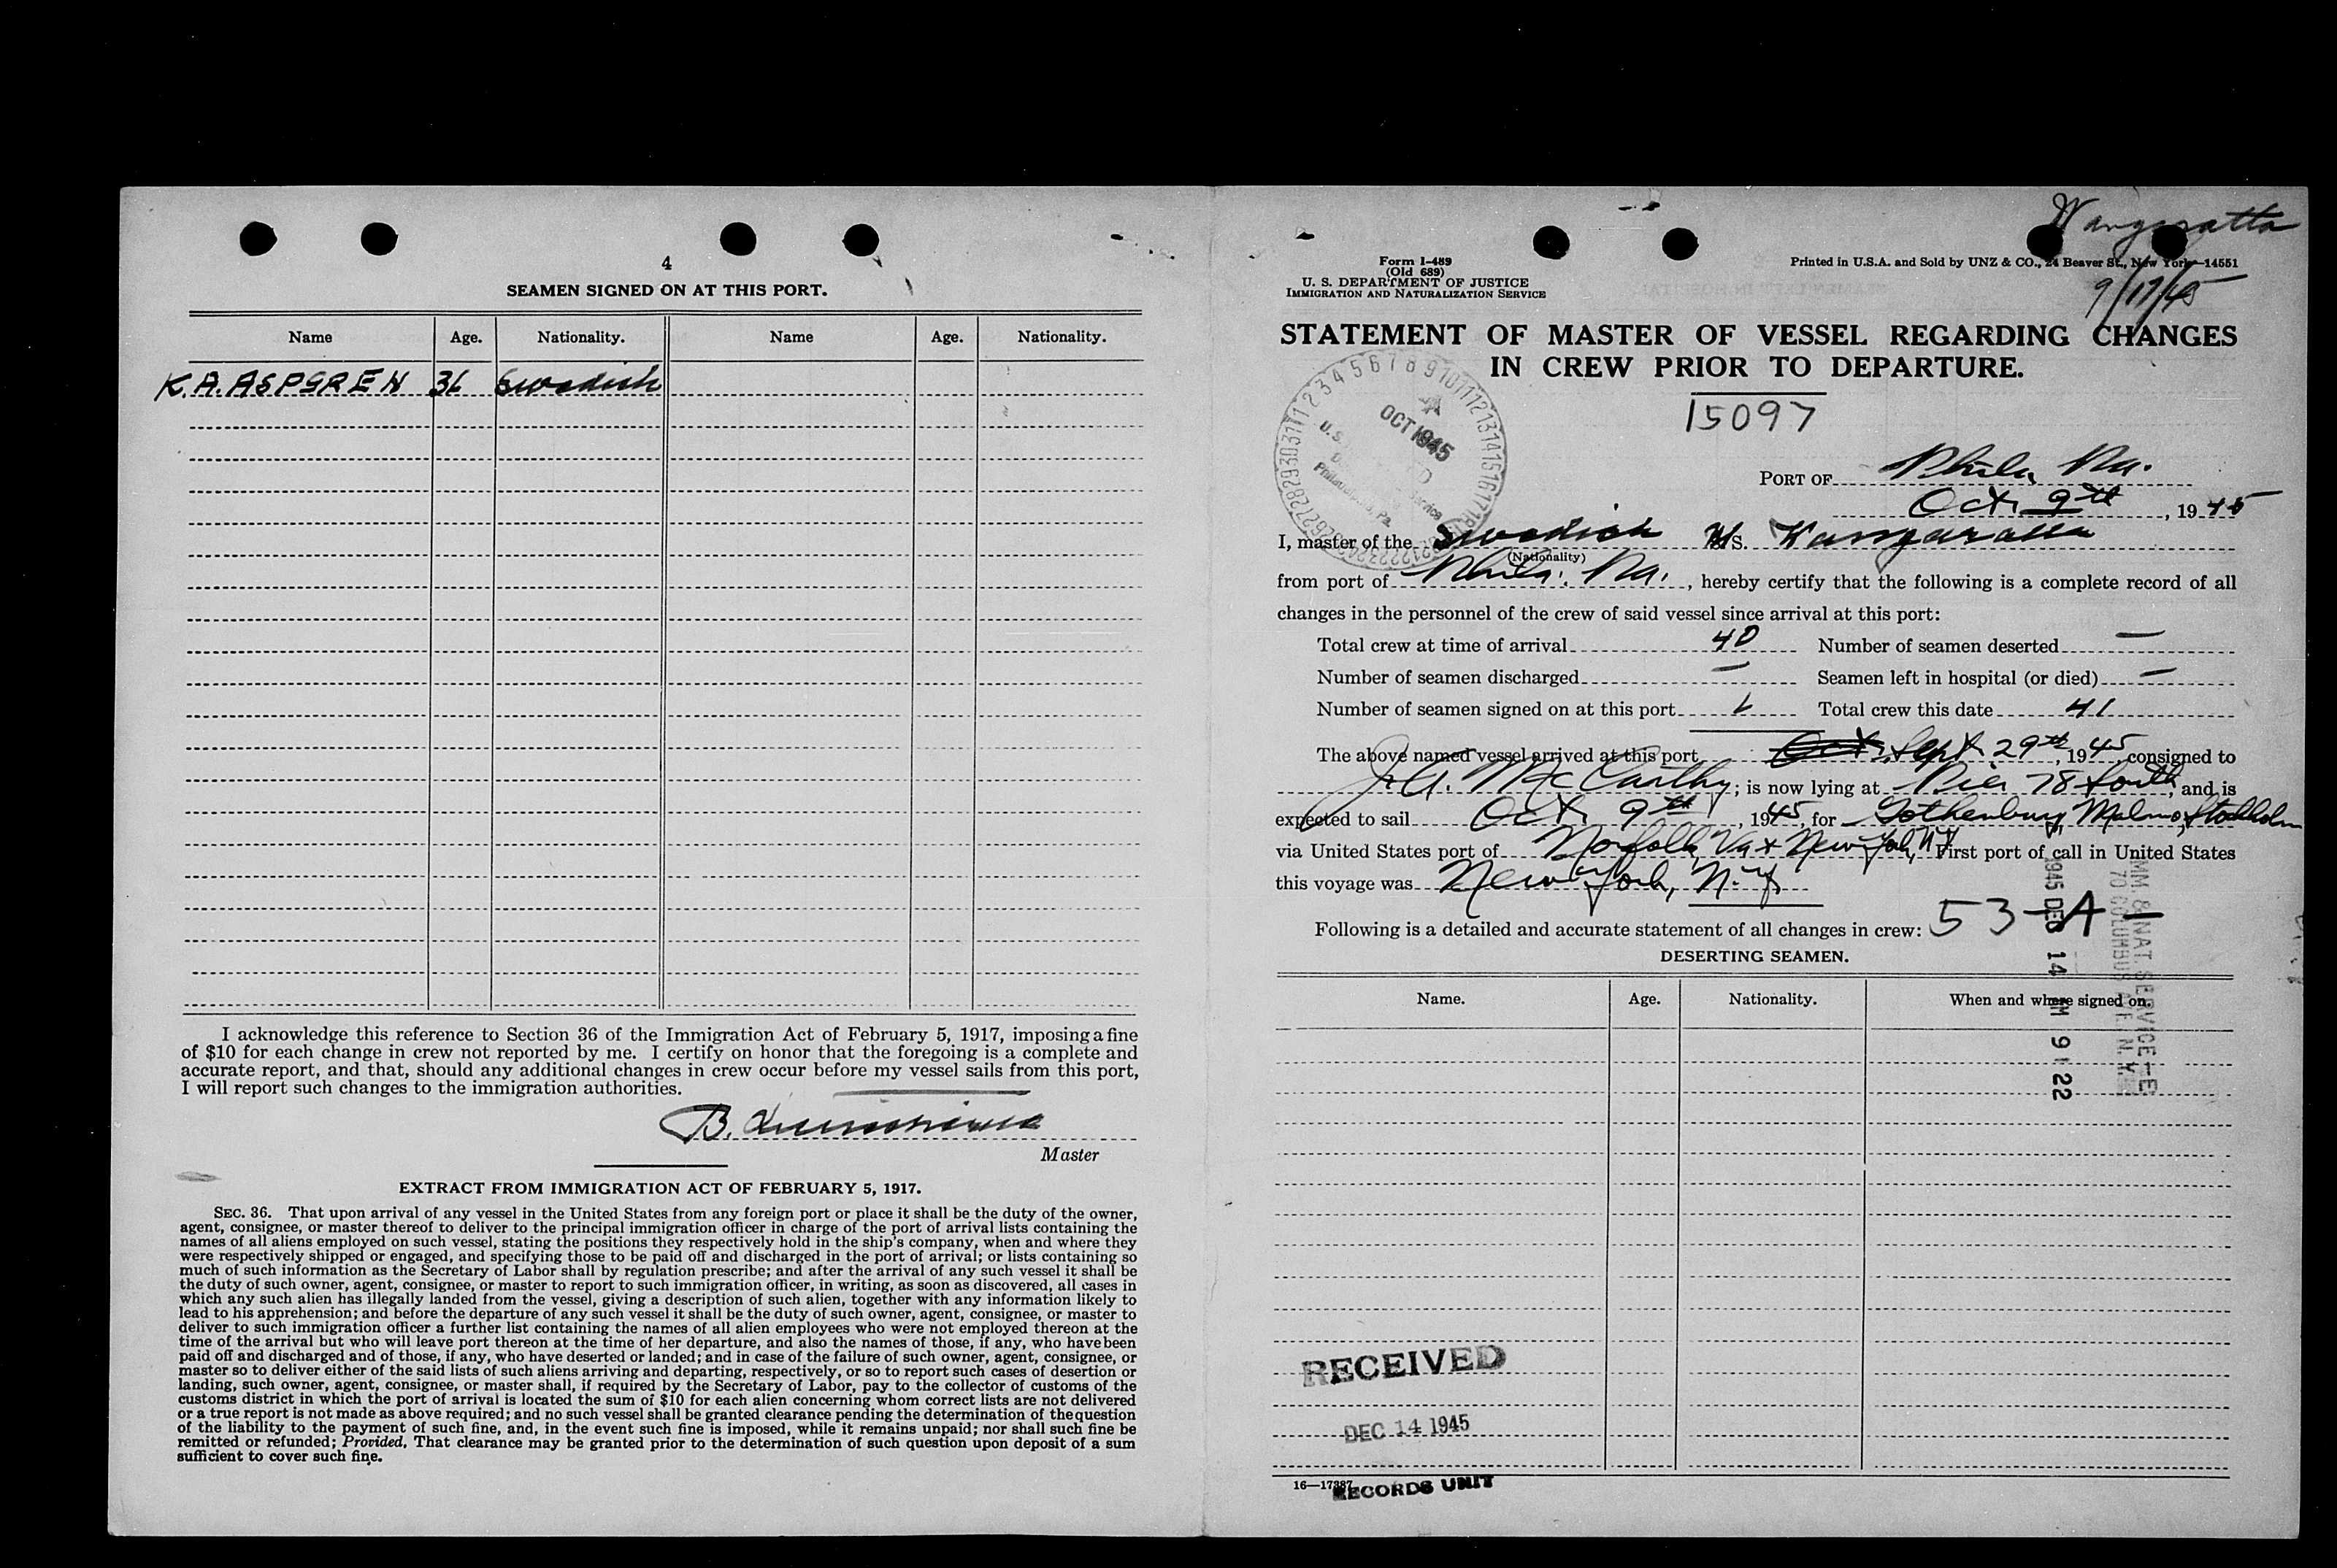 4
SEAMEN SIGNED ON AT THIS PORT.
Name Age. Nationality. Name Age. Nationality.
K. A. ASPGREN 36 Swedish
I acknowledge this reference to Section 36 of the Immigration Act of February 5, 1917, imposing a fine
of $10 for each change in crew not reported by me. I certify on honor that the foregoing is a complete and
accurate report, and that, should any additional changes in crew occur before my vessel sails from this port,
I will report such changes to the immigration authorities.
B.
Master
EXTRACT FROM IMMIGRATION ACT OF FEBRUARY 5, 1917.
SEC. 36. That upon arrival of any vessel in the United States from any foreign port or place it shall be the duty of the owner,
agent, consignee, or master thereof to deliver to the principal immigration officer in charge of the port of arrival lists containing the
names of all aliens employed on such vessel, stating the positions they respectively hold in the ship's company, when and where they
were respectively shipped or engaged, and specifying those to be paid off and discharged in the port of arrival; or lists containing so
much of such information as the Secretary of Labor shall by regulation prescribe; and after the arrival of any such vessel it shall be
the duty of such owner, agent, consignee, or master to report to such immigration officer, in writing, as soon as discovered, all cases in
which any such alien has illegally landed from the vessel, giving a description of such alien, together with any information likely to
lead to his apprehension; and before the departure of any such vessel it shall be the duty of such owner, agent, consignee, or master to
deliver to such immigration officer a further list containing the names of all alien employees who were not employed thereon at the
time of the arrival but who will leave port thereon at the time of her departure, and also the names of those, if any, who have been
paid off and discharged and of those, if any, who have deserted or landed; and in case of the failure of such owner, agent, consignee, or
master so to deliver either of the said lists of such aliens arriving and departing, respectively, or so to report such cases of desertion or
landing, such owner, agent, consignee, or master shall, if required by the Secretary of Labor, pay to the collector of customs of the
customs district in which the port of arrival is located the sum of $10 for each alien concerning whom correct lists are not delivered
or a true report is not made as above required; and no such vessel shall be granted clearance pending the determination of the question
of the liability to the payment of such fine, and, in the event such fine is imposed, while it remains unpaid; nor shall such fine be
remitted or refunded; Provided, That clearance may be granted prior to the determination of such question upon deposit of a sum
sufficient to cover such fine.
Wangaratta
9/17/45
Form I-489
(Old 689)
U. S. DEPARTMENT OF JUSTICE
IMMIGRATION AND NATURALIZATION SERVICE
Printed in U.S.A. and Sold by UNZ & CO., 24 Beaver St., New York—14551
STATEMENT OF MASTER OF VESSEL REGARDING CHANGES
IN CREW PRIOR TO DEPARTURE.
15097
OCT 1945
Philadelphia, Pa.
PORT OF Phila, Pa.
Oct. 9th, 1945
I, master of the Swedish M/S. Wangaratta
(Nationality)
from port of Phila. Pa., hereby certify that the following is a complete record of all
changes in the personnel of the crew of said vessel since arrival at this port:
Total crew at time of arrival 40 Number of seamen deserted —
Number of seamen discharged — Seamen left in hospital (or died) —
Number of seamen signed on at this port 1 Total crew this date 41
The above named vessel arrived at this port Oct. Sept. 29th, 1945 consigned to
J. A. McCarthy; is now lying at Pier 78 South, and is
expected to sail Oct. 9th, 1945, for Gothenburg, Malmo, Stockholm
via United States port of Norfolk, Va + New York, N.Y. First port of call in United States
this voyage was New York, N.Y.
Following is a detailed and accurate statement of all changes in crew: 53-A-1
DESERTING SEAMEN.
Name. Age. Nationality. When and where signed on.
IMM. & NAT. SERVICE
70 COLUMBUS AVE. N. Y.
1945 DEC 14 AM 9 22
RECEIVED
DEC 14 1945
RECORDS UNIT
16—17387